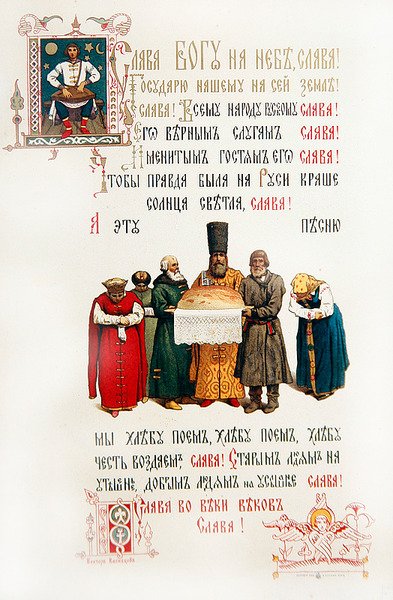 Слава Богу на небѣ, слава!
Государю нашему на сей землѣ
слава! Всему народу русскому слава!
Его вѣрнымъ слугамъ слава!
Именитымъ гостямъ его слава!
Чтобы правда была на Руси краше
солнца свѣтла, слава!
А эту пѣсню
мы хлѣбу поемъ, хлѣбу поемъ, хлѣбу
честь воздаемъ, слава! Старымъ людямъ на
утѣшенье, добрымъ людямъ на услышанье слава!
Слава во вѣки вѣковъ
Слава!
Виктора Васнецова